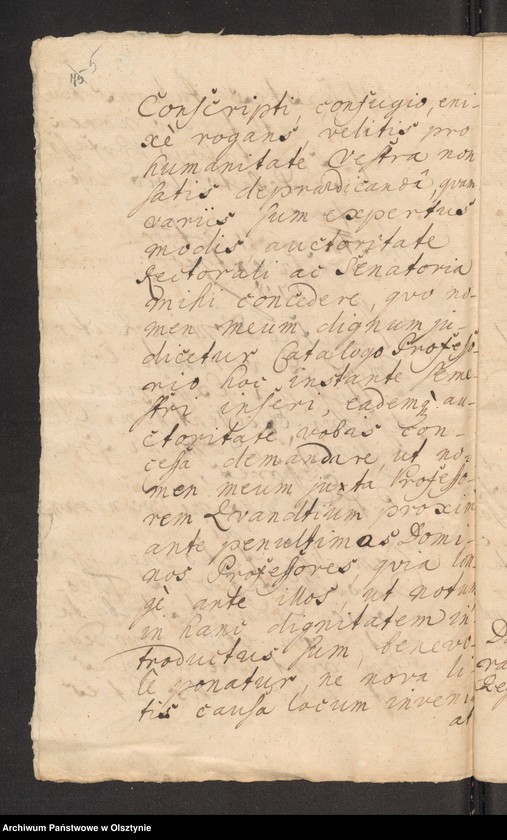 5
Conscripti, confugio, eni-
xè rogans, velitis pro
humanitate Vestra non
satis depraedicandâ, quam
variis sum expertus
modis auctoritate
Rectorali ac Senatoria
mihi concedere, quo no-
men meum dignum ju-
dicetur Catalogo Profess-
orio hoc instante Seme-
stri inseri, eademq au-
ctoritate, vobis con-
cessa demandare, ut no-
men meum juxta Professo-
rem Qvandtium proxim
ante penultimos Domi-
nos Professores, qvia lon-
gè ante illos, ut notum
in hanc dignitatem in-
troductus sum, benevo-
lè ponatur, ne nova li-
tis causa locum inveni
at
Archiwum Państwowe w Olsztynie